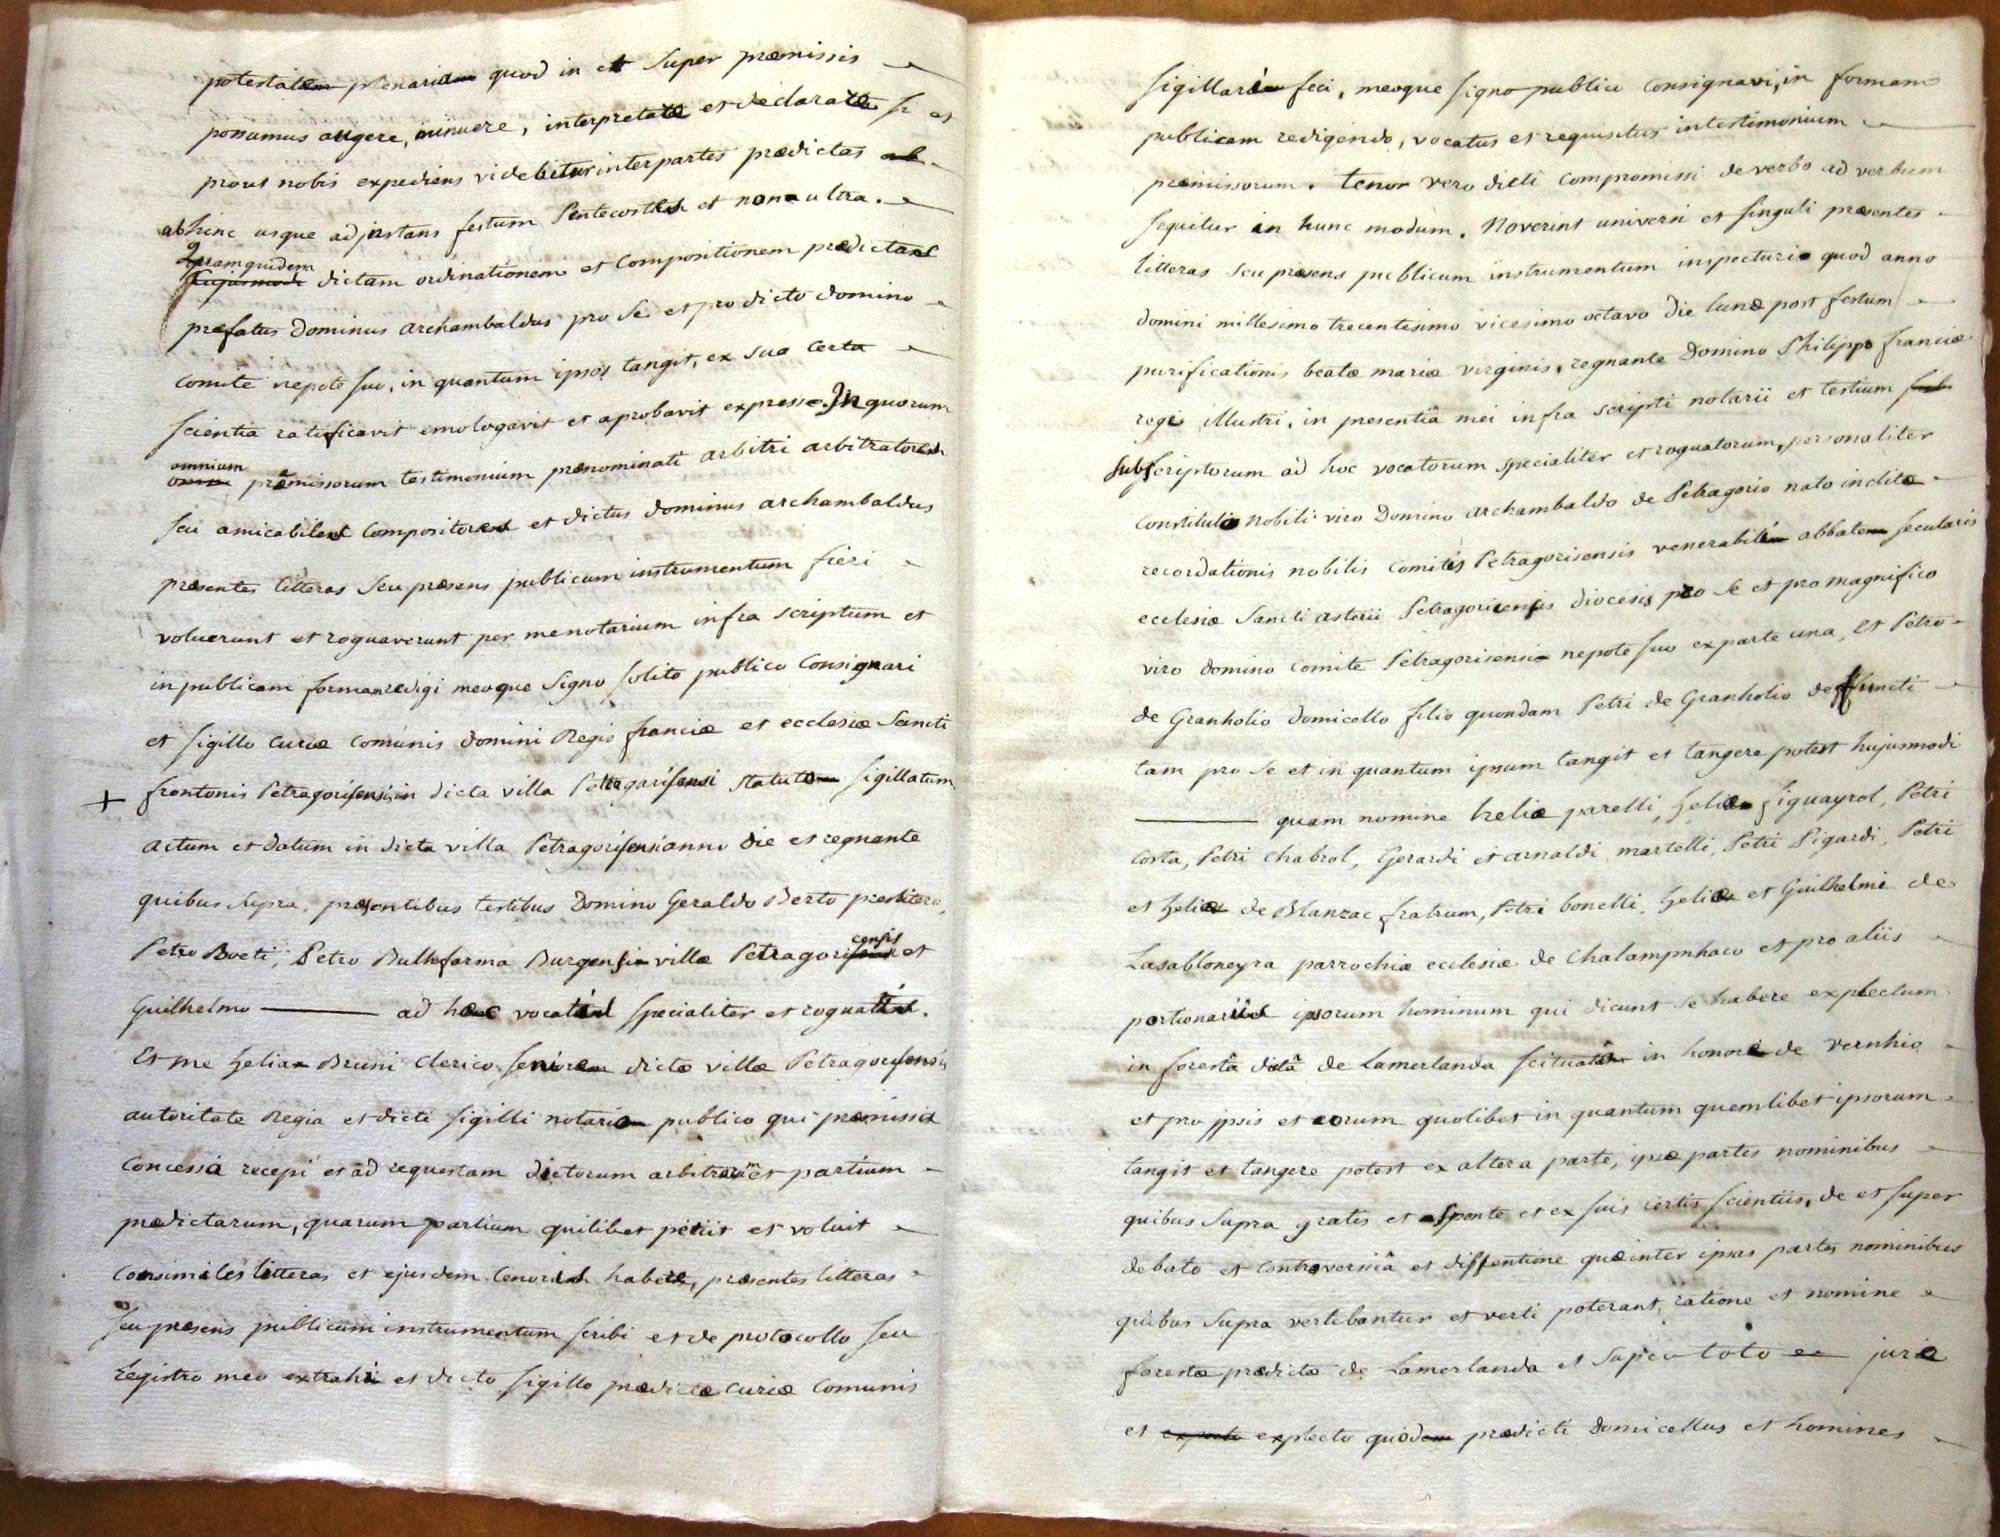 potestatem plenariam quod in et super præmissis
possumus augere, minuere, interpretare et declarare si et
prout nobis expediens videbitur inter partes prædictas ab
abhinc usque ad instans festum Pentecostes et non ultra.
Quamquidem dictam ordinationem et compositionem prædictam
præfatus Dominus archambaldus pro se et pro dicto domino
comite nepote suo, in quantum ipsos tangit, ex sua certa
scientia ratificavit emologavit et aprobavit expresse. In quorum
omnium præmissorum testimonium prænominati arbitri arbitratores
seu amicabiles compositores et dictus dominus archambaldus
præsentes litteras seu præsens publicum instrumentum fieri
voluerunt et roguaverunt per me notarium infra scriptum et
in publicam formam redigi meoque signo solito publico consignari
et sigillo curiæ comunis domini Regis franciæ et ecclesiæ Sancti
+ frontonis Petragorisensis in dicta villa Petragorisensi statuto sigillatum
actum et datum in dicta villa Petragorisensi anno die et regnante
quibus supra, præsentibus testibus Domino Geraldo Berto presbitero,
Petro Boeti, Petro Bulhfarma Burgensis villæ Petragoricensis et
Guilhelmo ——— ad hæc vocatis specialiter et roguatis.
Et me helia Bruni clerico seniore dictæ villæ Petragorisensis
autoritate Regia et dicti sigilli notario publico qui præmissa
concessa recepi et ad requestam dictorum arbitrorum et partium
prædictarum, quarum partium quilibet petiit et voluit
consimiles litteras et ejusdem tenoris habere, præsentes litteras
seu præsens publicum instrumentum scribi et de protocollo seu
Registro meo extrahi et dicto sigillo prædictæ curiæ comunis
sigillari feci, meoque signo publico consignavi, in formam
publicam redigendo, vocatus et requisitus in testimonium
præmissorum. tenor vero dicti compromissi de verbo ad verbum
sequitur in hunc modum. Noverint universi et singuli præsentes
litteras seu præsens publicum instrumentum inspecturi quod anno
domini millesimo trecentesimo vicesimo octavo die lunæ post festum
purificationis beatæ mariæ virginis, regnante Domino Philippo franciæ
rege illustri, in presentiâ mei infra scripti notarii et testium sub
subscriptorum ad hoc vocatorum specialiter et roguatorum, personaliter
constituto nobili viro Domino archambaldo de Petragorio nato inclitæ
recordationis nobilis comitis Petragorisensis venerabili abbate secularis
ecclesiæ Sancti asterii Petragoricensis diocesis pro se et pro magnifico
viro domino comite Petragorisensi nepote suo ex parte una, et Petro
de Granholio domicello filio quondam Petri de Granholio deffuncti
tam pro se et in quantum ipsum tangit et tangere potest hujusmodi
——— quam nomine heliæ parelli, heliæ figuayrol, Petri
Costa, Petri chabrol, Gerardi et arnaldi martelli, Petri Pigardi, Petri
et heliæ de Blanzac fratrum, Petri bonelli, heliæ et Guilhelmi de
Lasabloneyra parrochiæ ecclesiæ de Chalampnhaco et pro aliis
portionariis ipsorum hominum qui dicunt se habere explectum
in forestâ dictâ de Lamerlanda scituatâ in honore de vernhio
et pro ipsis et eorum quolibet in quantum quemlibet ipsorum
tangit et tangere potest ex altera parte, ipsæ partes nominibus
quibus supra gratis et sponte et ex suis certis scientiis, de et super
debato et controversiâ et dissentione quæ inter ipsas partes nominibus
quibus supra vertebantur et verti poterant, ratione et nomine
forestæ prædictæ de Lamerlanda et super toto jure
et explecto quod prædicti domicellus et homines